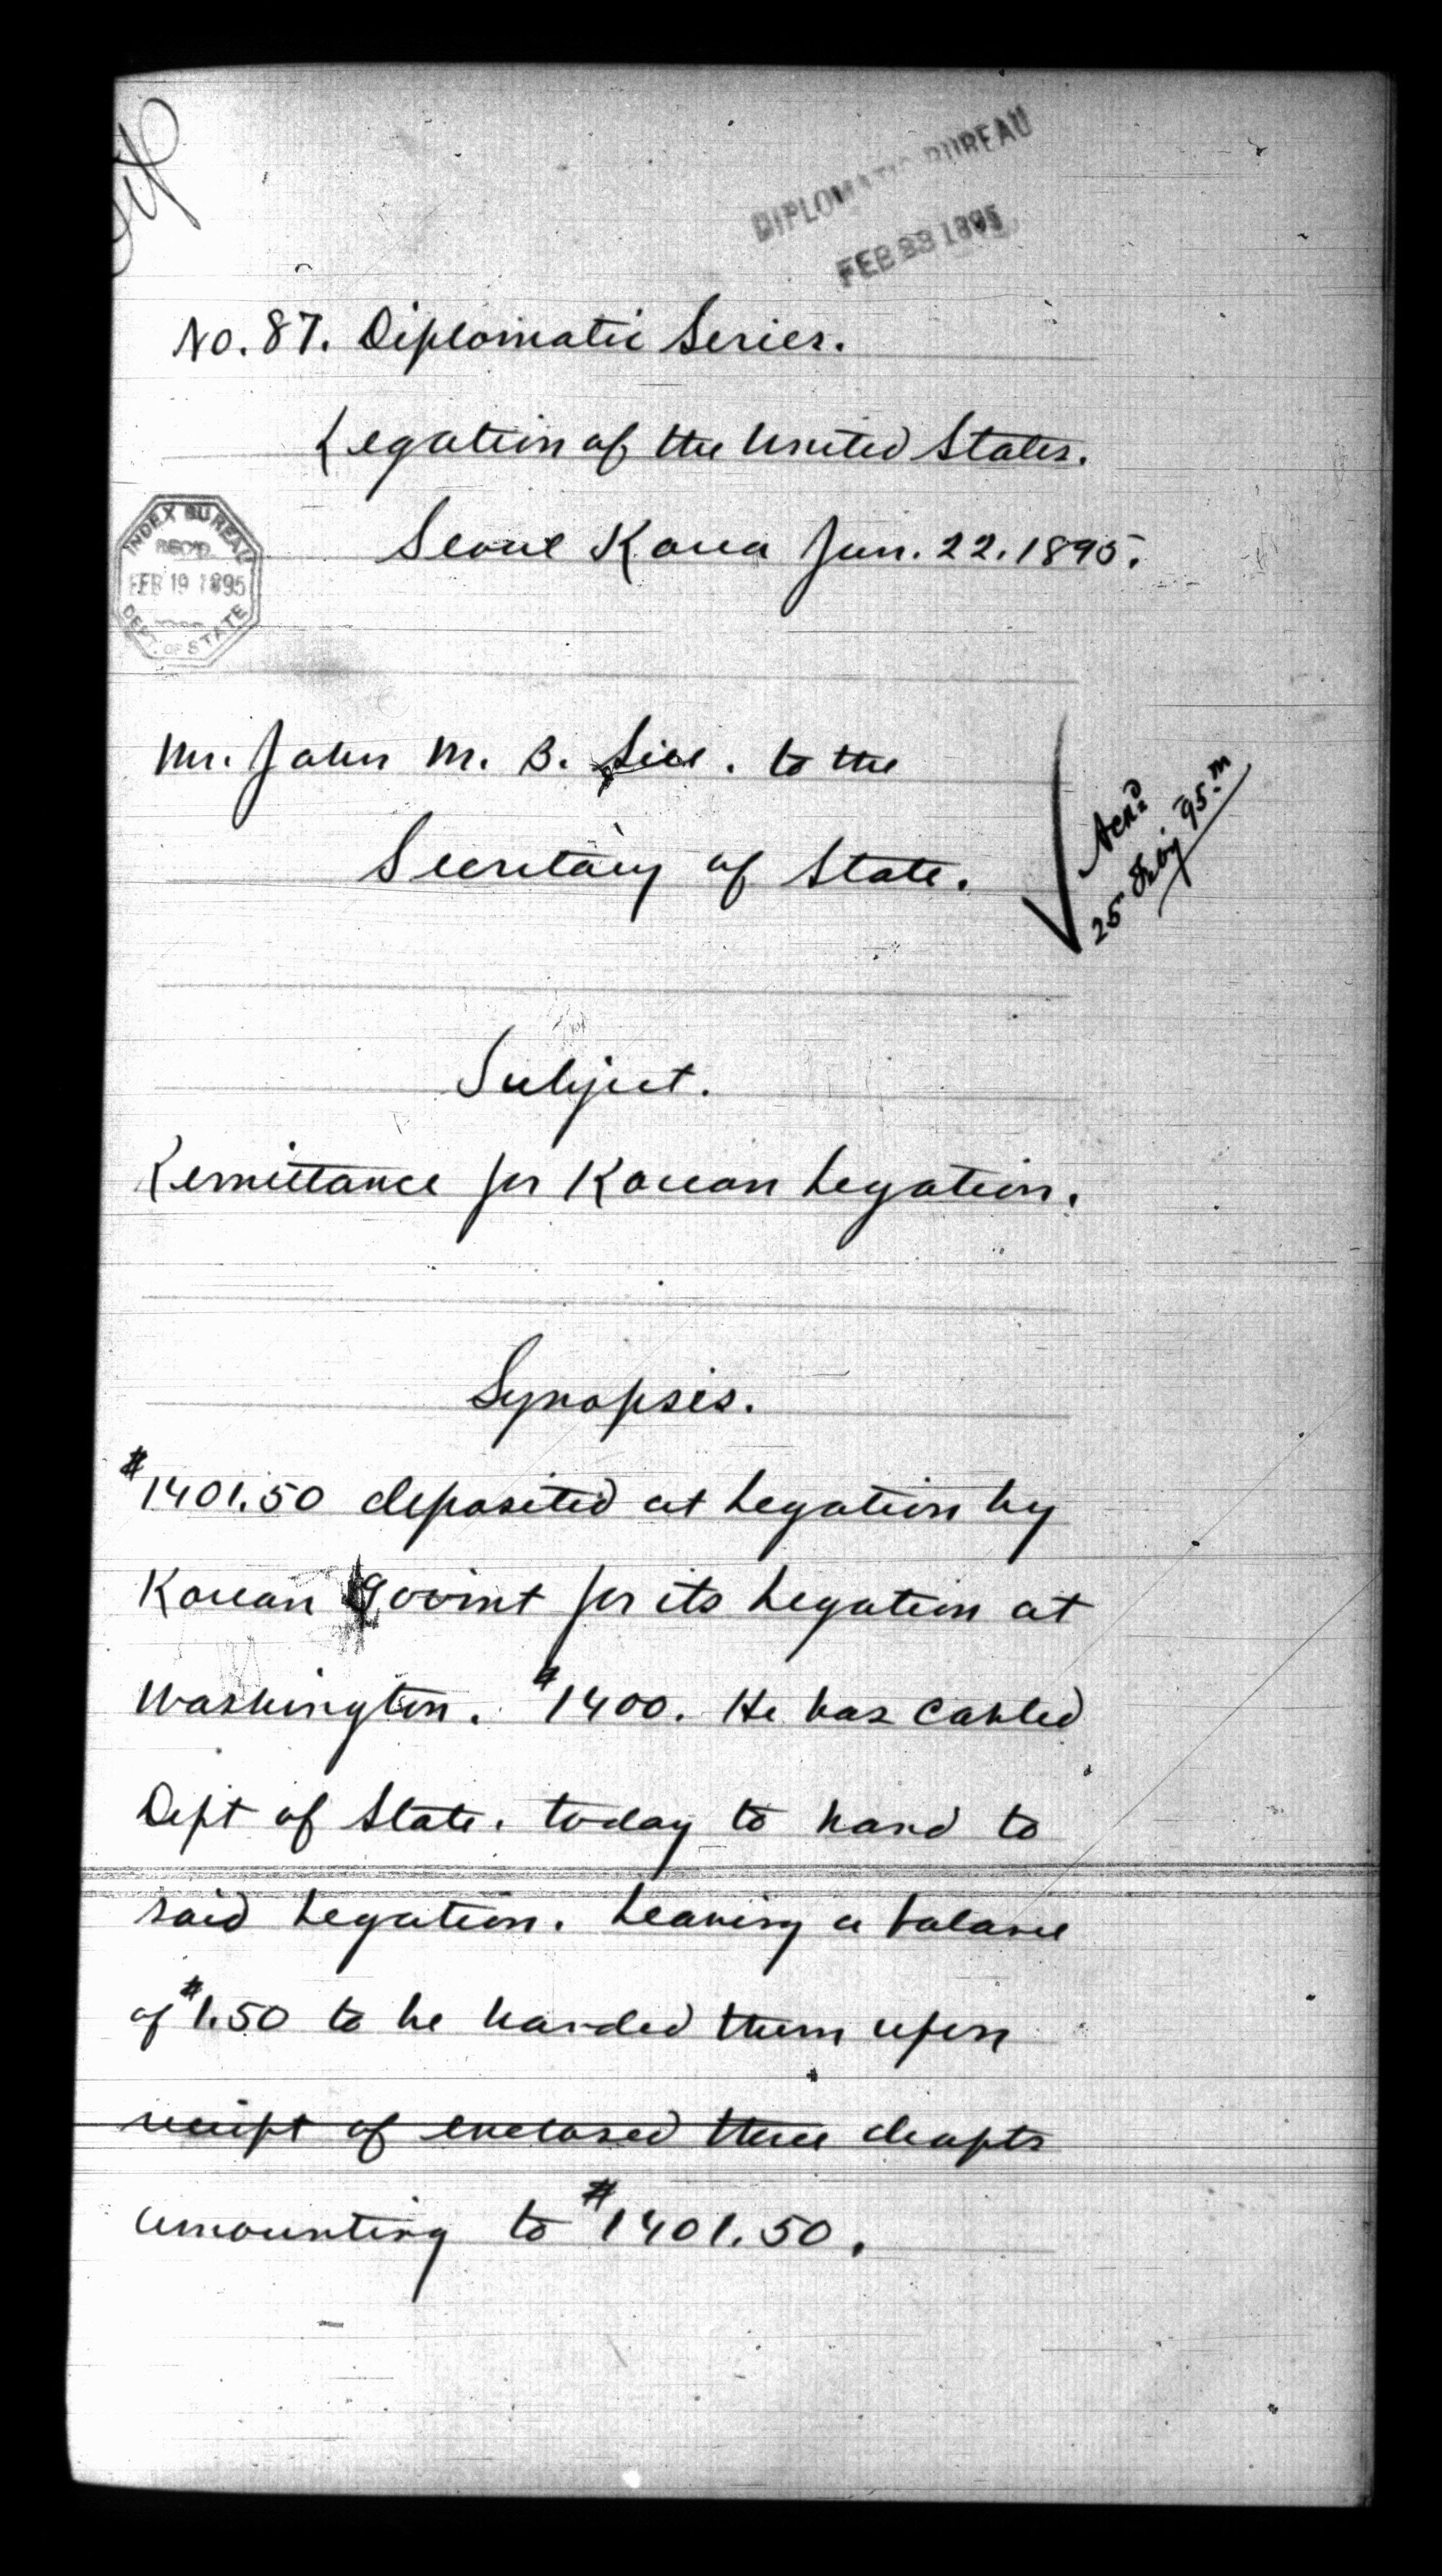 DIPLOMATIC BUREAU
FEB 23 1895
No. 87. Diplomatic Series.
Legation of the United States.
Seoul Korea Jan. 22. 1895.
INDEX BUREAU
REC'D
FEB 19 1895
DEPT. OF STATE
Mr. John M. B. Sill. to the
Secretary of State.
Ack'd
25 Feby 95
Subject.
Remittance for Korean Legation.
Synopsis.
$1401.50 deposited at Legation by
Korean Govmt for its Legation at
Washington. $1400. He has cabled
Dept of State. today to hand to
said Legation. Leaving a balance
of $1.50 to be handed them upon
receipt of enclosed three drafts
amounting to $1401.50.